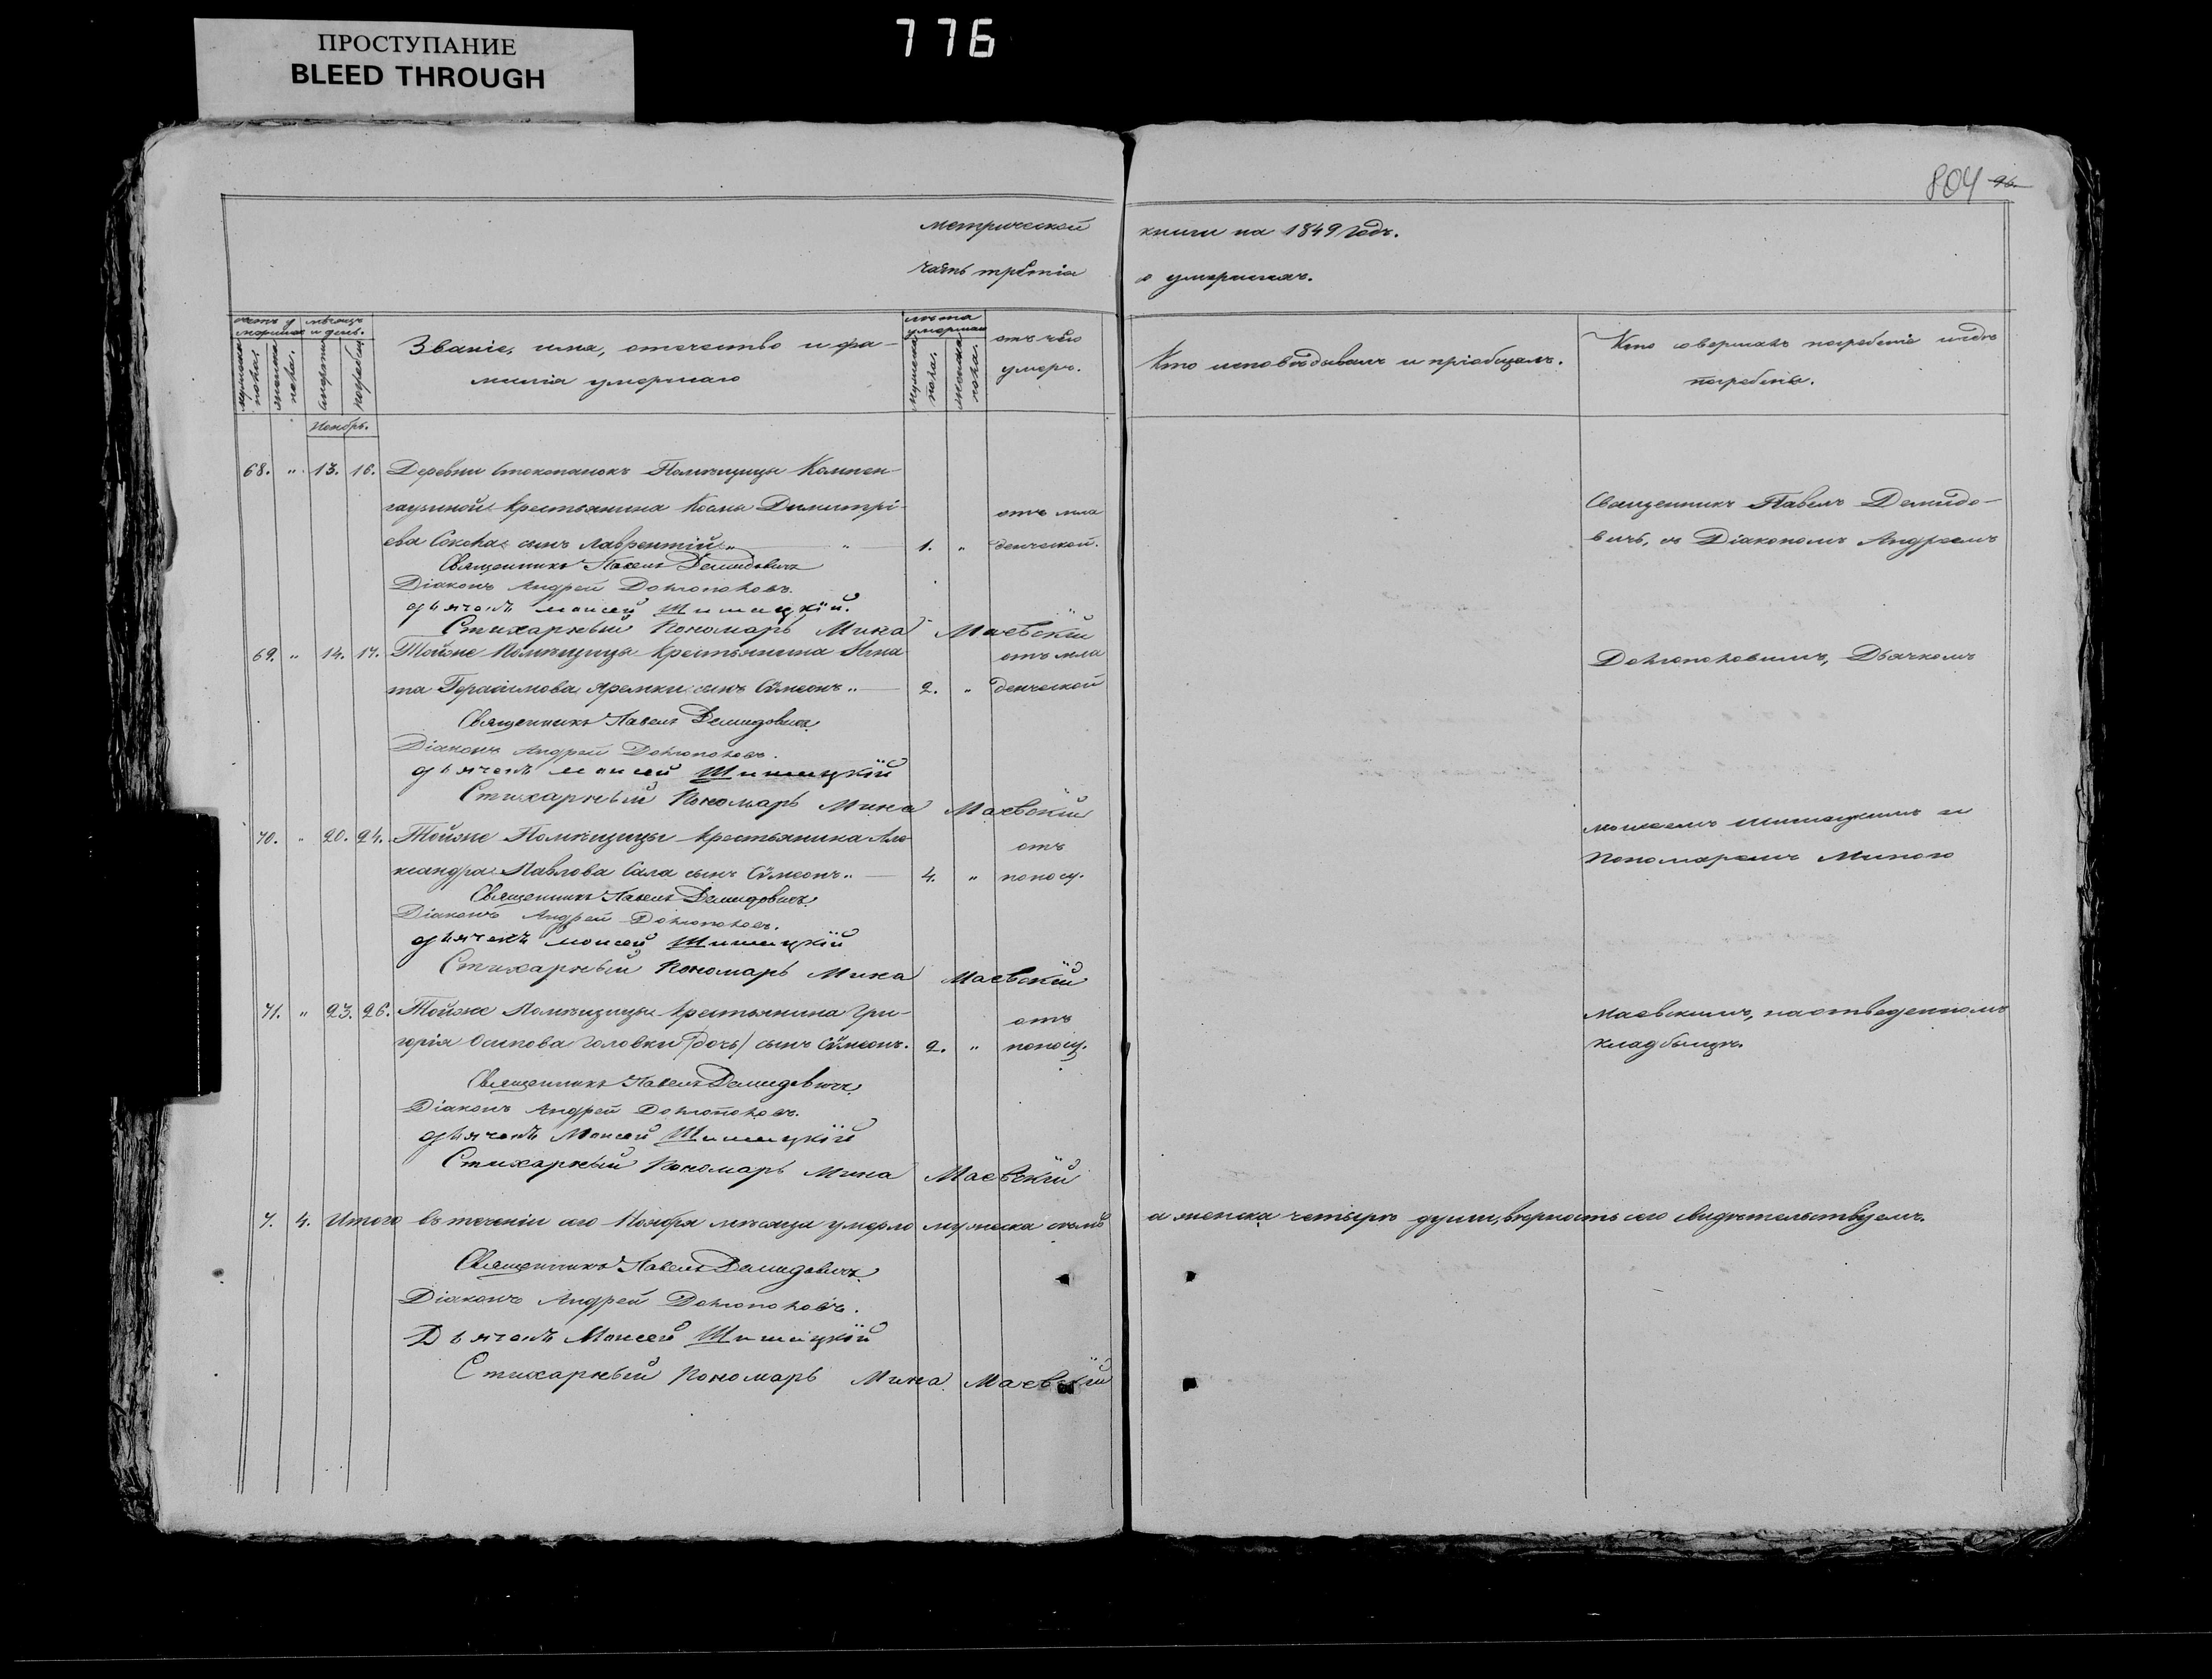 ПРОСТУПАНИЕ
BLEED THROUGH
776
804 96.
метрической книги на 1849 годъ.
часть третіа о умершихъ.
мужеска пола
женска пола.
мѣсяцъ и день.
смерти
погребен.
Званіе, имя, отечество и фа-
миліа умершаго
лѣта умершаго
мужеска пола.
женска пола.
отъ чего
умеръ.
Кто исповѣдывалъ и пріобщалъ.
Кто совершалъ погребеніе и гдѣ
погребены.
Ноябрь.
68. " 13. 16. Деревни Помѣщицы
крестьянина Космы Димитрі- отъ мла
ева сынъ Лаврентій " 1. " денческой.
Священникъ Павелъ Демидовичъ
Діаконъ Андрей
Дьячекъ Моисей Шишацкій.
Стихарный Пономарь Мина Маевскій
Священникъ Павелъ Демидо-
вичъ, съ Діакономъ Андреемъ
69. " 14. 17. Тойже Помѣщицы крестьянина Игна- отъ мла
та Герасимова Яремки сынъ Сѵмеонъ " 2. " денческой
Священникъ Павелъ Демидовичъ
Діаконъ Андрей
Дьячекъ Моисей Шишацкій
Стихарный Пономарь Мина Маевскій
Дьячкомъ
70. " 20. 24. Тойже Помѣщицы крестьянина Але- отъ
ксандра Павлова Сала сынъ Сѵмеонъ " 4. " поносу.
Священникъ Павелъ Демидовичъ
Діаконъ Андрей
Дьячекъ Моисей Шишацкій
Стихарный Пономарь Мина Маевскій
Моисеемъ Шишацкимъ и
Пономаремъ Миною
71. " 23. 26. Тойже Помѣщицы крестьянина Гри- отъ
горіа Осипова Головки (дочь) сынъ Сѵмеонъ. 2. " поносу.
Священникъ Павелъ Демидовичъ
Діаконъ Андрей
Дьячекъ Моисей Шишацкій
Стихарный Пономарь Мина Маевскій
Маевскимъ, на отведенномъ
кладбищѣ.
7. 4. Итого въ теченіи сего Ноября мѣсяца умерло мужеска семь а женска четыре души, вѣрность сего свидѣтельствуемъ.
Священникъ Павелъ Демидовичъ
Діаконъ Андрей
Дьячекъ Моисей Шишацкій
Стихарный Пономарь Мина Маевскій